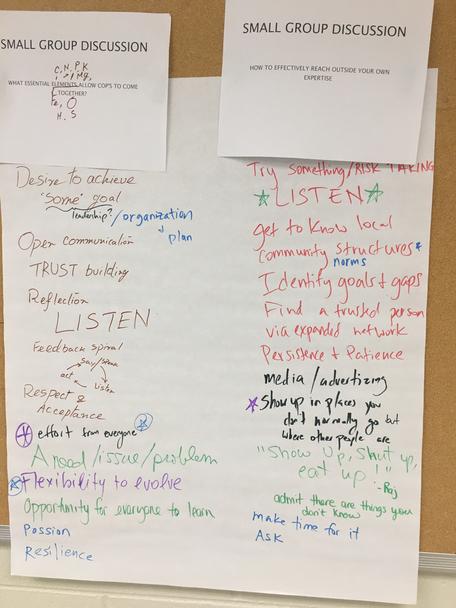 SMALL GROUP DISCUSSION
C, N, P, K
WHAT ESSENTIAL ELEMENTS ALLOW COP'S TO COME
TOGETHER?
Fe, O
H, S
Desire to achieve
"some" goal
leadership? / organization
& plan
Open communication
TRUST building
Reflection
LISTEN
Feedback spiral
Say/Share
act
listen
Respect &
Acceptance
effort from everyone
A need/issue/problem
Flexibility to evolve
Opportunity for everyone to learn
Passion
Resilience
SMALL GROUP DISCUSSION
HOW TO EFFECTIVELY REACH OUTSIDE YOUR OWN
EXPERTISE
Try something/RISK TAKING
LISTEN
get to know local
community structures &
norms
Identify goals + gaps
Find a trusted person
via expanded network
Persistence + Patience
media/advertizing
Show up in places you
don't normally go but
where other people are
"Show up, shut up,
eat up!"
-Raj
admit there are things you
don't know
make time for it
ASK